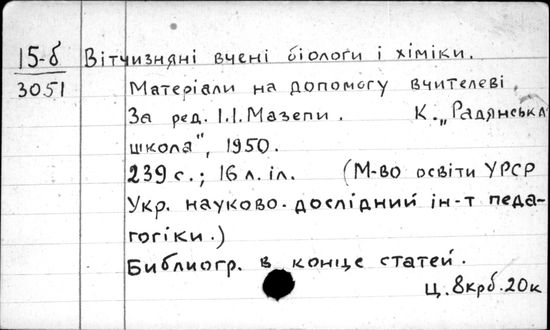 15-б Вітчизняні вчені біологи і хіміки.
3051 Матеріали на допомогу вчителеві.
За ред. І.І. Мазепи. К. „Радянська
школа", 1950.
239 с.; 16 л. іл. (М-во освіти УРСР
Укр. науково-дослідний ін-т педа-
гогіки.)
Библиогр. в конце статей.
Ц. 8крб. 20к